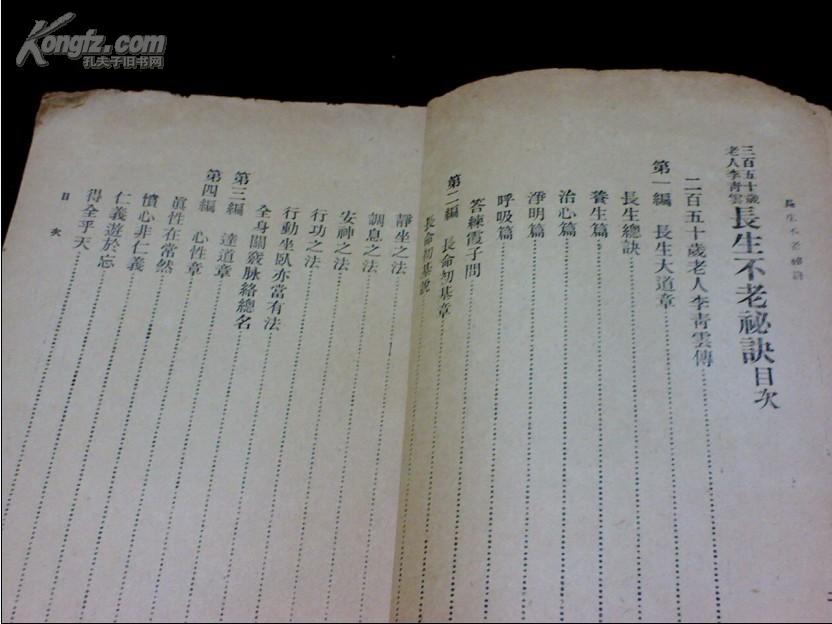 Kongfz.com
孔夫子旧书网
長生不老祕訣
三百五十歲
老人李靑雲
長生不老祕訣目次
二百五十歲老人李靑雲傳
第一編 長生大道章
長生總訣
養生篇
治心篇
淨明篇
呼吸篇
答練霞子問
第二編 長命初基章
長命初基說
靜坐之法
調息之法
安神之法
行功之法
行動坐臥亦當有法
全身關竅脉絡總名
第三編 達道章
第四編 心性章
眞性在常然
憤心非仁義
仁義遊於忘
得全乎天
目次